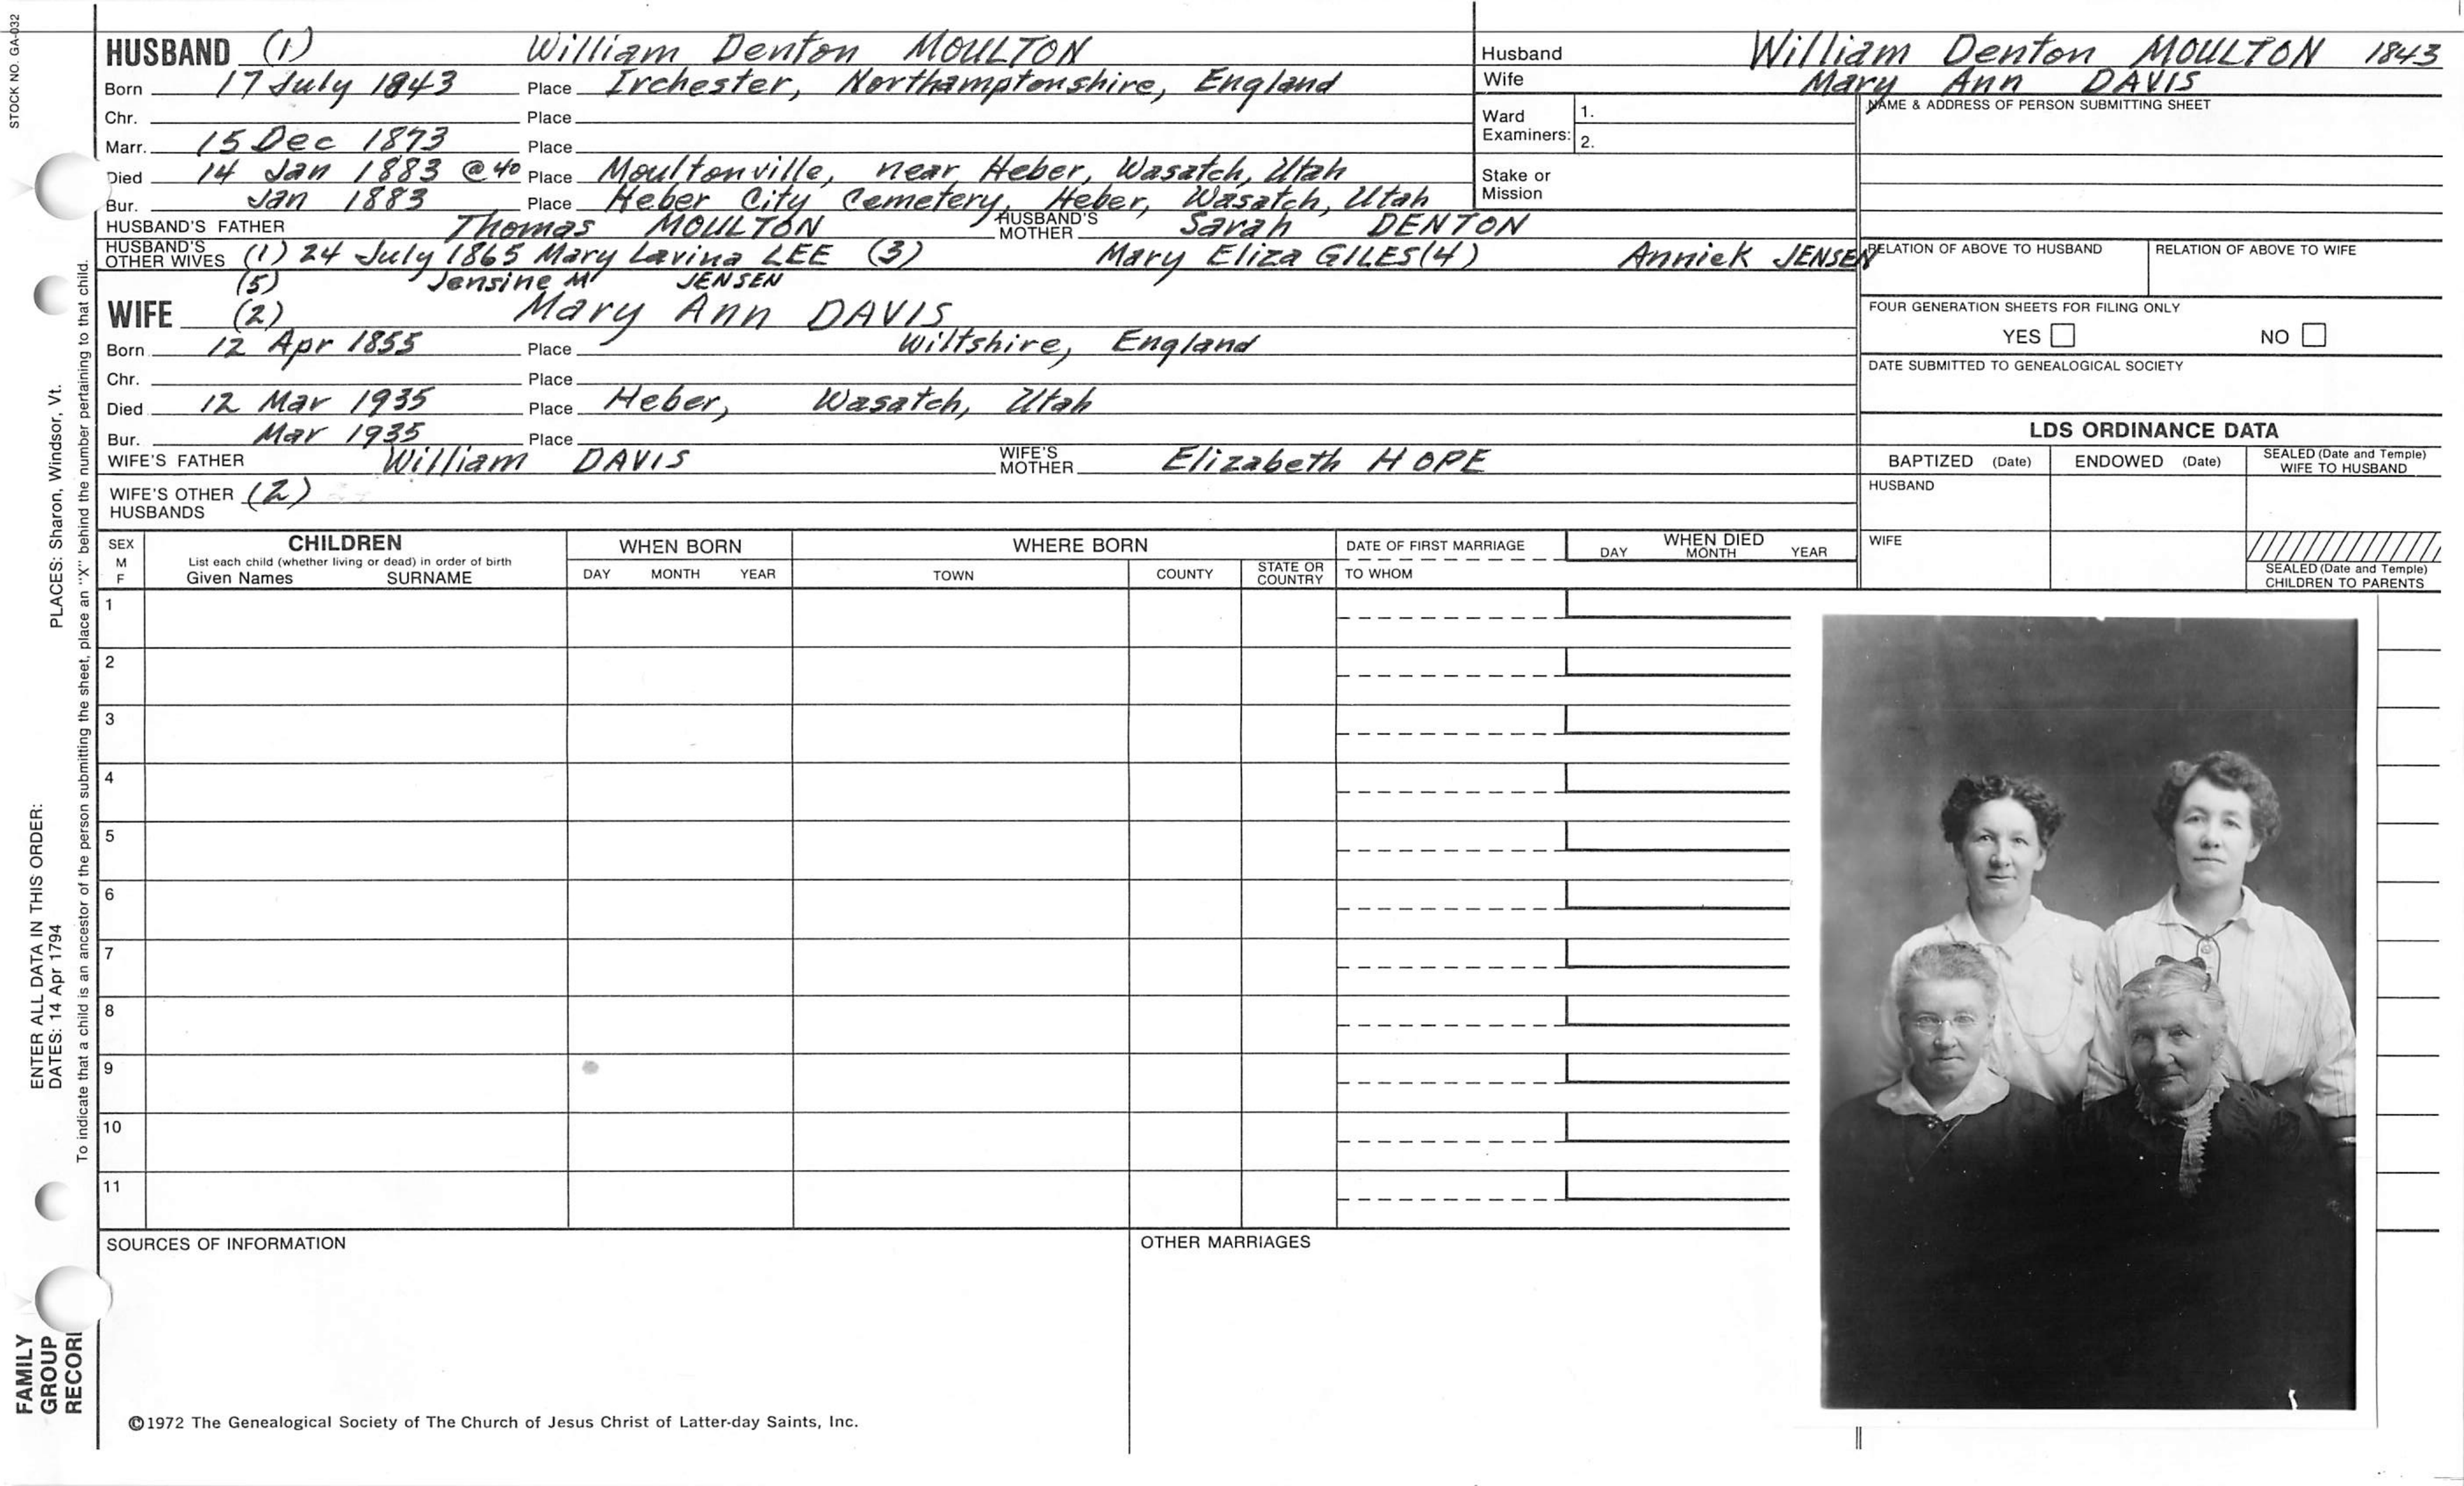 STOCK NO. GA-032
HUSBAND (1) William Denton MOULTON
Born 17 July 1843 Place Irchester, Northamptonshire, England
Chr. Place
Marr. 15 Dec 1873 Place
Died 14 Jan 1883 @40 Place Moultonville, near Heber, Wasatch, Utah
Bur. Jan 1883 Place Heber City Cemetery, Heber, Wasatch, Utah
HUSBAND'S FATHER Thomas MOULTON HUSBAND'S MOTHER Sarah DENTON
HUSBAND'S OTHER WIVES (1) 24 July 1865 Mary Lavina LEE (3) Mary Eliza GILES (4) Annick JENSEN
(5) Jensine M JENSEN
WIFE (2) Mary Ann DAVIS
Born 12 Apr 1855 Place Wiltshire, England
Chr. Place
Died 12 Mar 1935 Place Heber, Wasatch, Utah
Bur. Mar 1935 Place
WIFE'S FATHER William DAVIS WIFE'S MOTHER Elizabeth HOPE
WIFE'S OTHER HUSBANDS (2)
Husband William Denton MOULTON 1843
Wife Mary Ann DAVIS
Ward Examiners: 1.
2.
Stake or Mission
NAME & ADDRESS OF PERSON SUBMITTING SHEET
RELATION OF ABOVE TO HUSBAND RELATION OF ABOVE TO WIFE
FOUR GENERATION SHEETS FOR FILING ONLY
YES NO
DATE SUBMITTED TO GENEALOGICAL SOCIETY
LDS ORDINANCE DATA
BAPTIZED (Date) ENDOWED (Date) SEALED (Date and Temple) WIFE TO HUSBAND
HUSBAND
WIFE
SEALED (Date and Temple) CHILDREN TO PARENTS
SEX M F
CHILDREN
List each child (whether living or dead) in order of birth
Given Names SURNAME
WHEN BORN
DAY MONTH YEAR
WHERE BORN
TOWN COUNTY STATE OR COUNTRY
DATE OF FIRST MARRIAGE
TO WHOM
WHEN DIED
DAY MONTH YEAR
1
2
3
4
5
6
7
8
9
10
11
SOURCES OF INFORMATION OTHER MARRIAGES
©1972 The Genealogical Society of The Church of Jesus Christ of Latter-day Saints, Inc.
PLACES: Sharon, Windsor, Vt.
ENTER ALL DATA IN THIS ORDER:
DATES: 14 Apr 1794
To indicate that a child is an ancestor of the person submitting the sheet, place an "X" behind the number pertaining to that child.
FAMILY
GROUP
RECORD